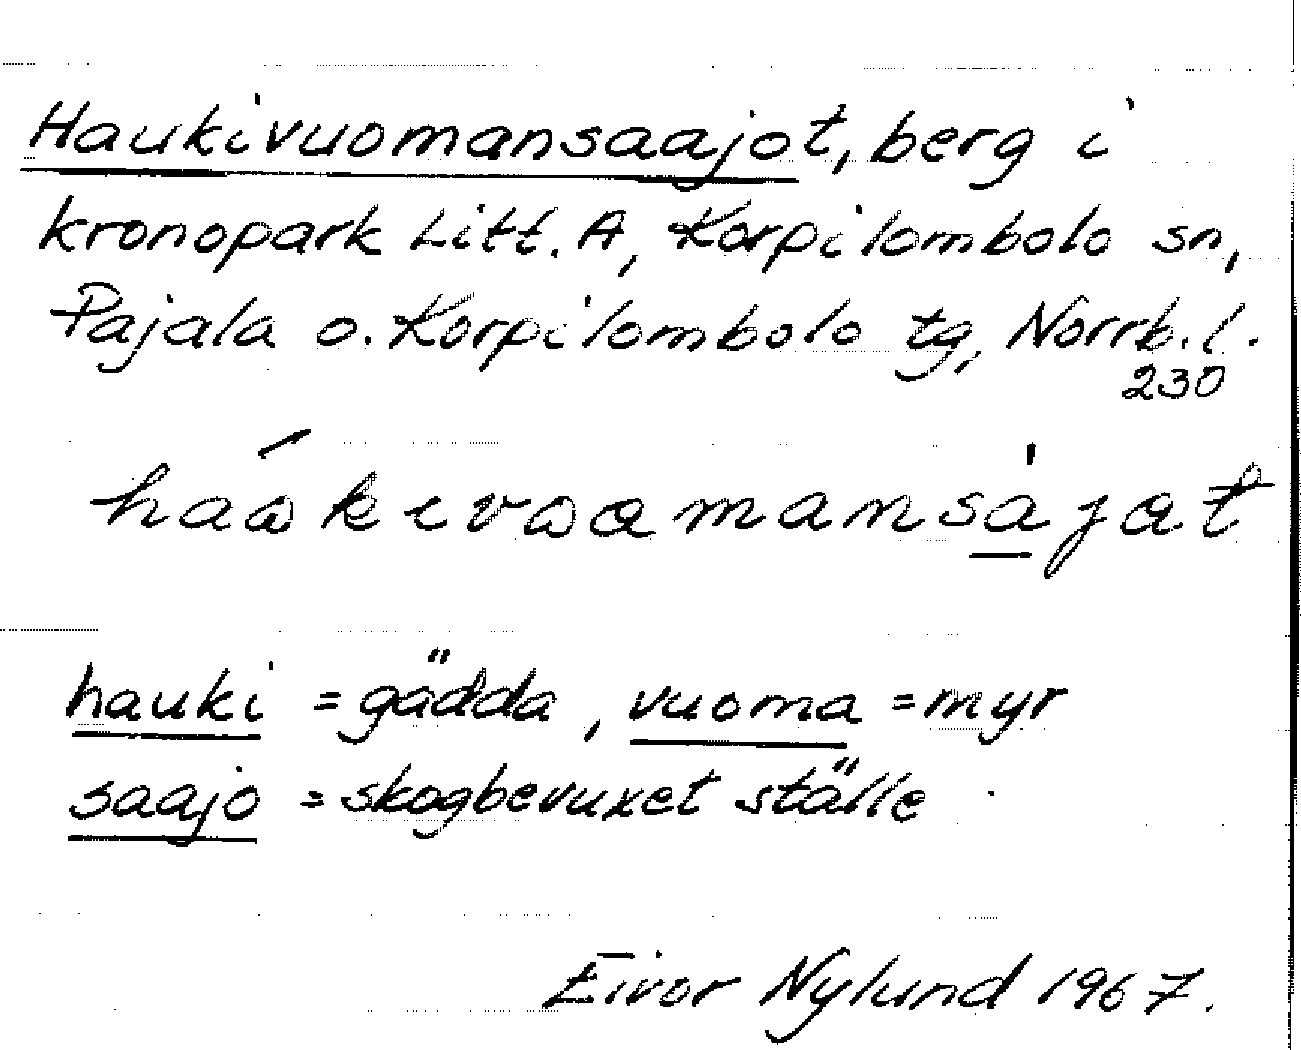 Haukivuomansaajot, berg i
kronopark Litt. A, Korpilombolo sn,
Pajala o. Korpilombolo tg, Norrb. l.
230
hauki = gädda, vuoma = myr
saajo = skogbevuxet ställe
Eivor Nylund 1967.